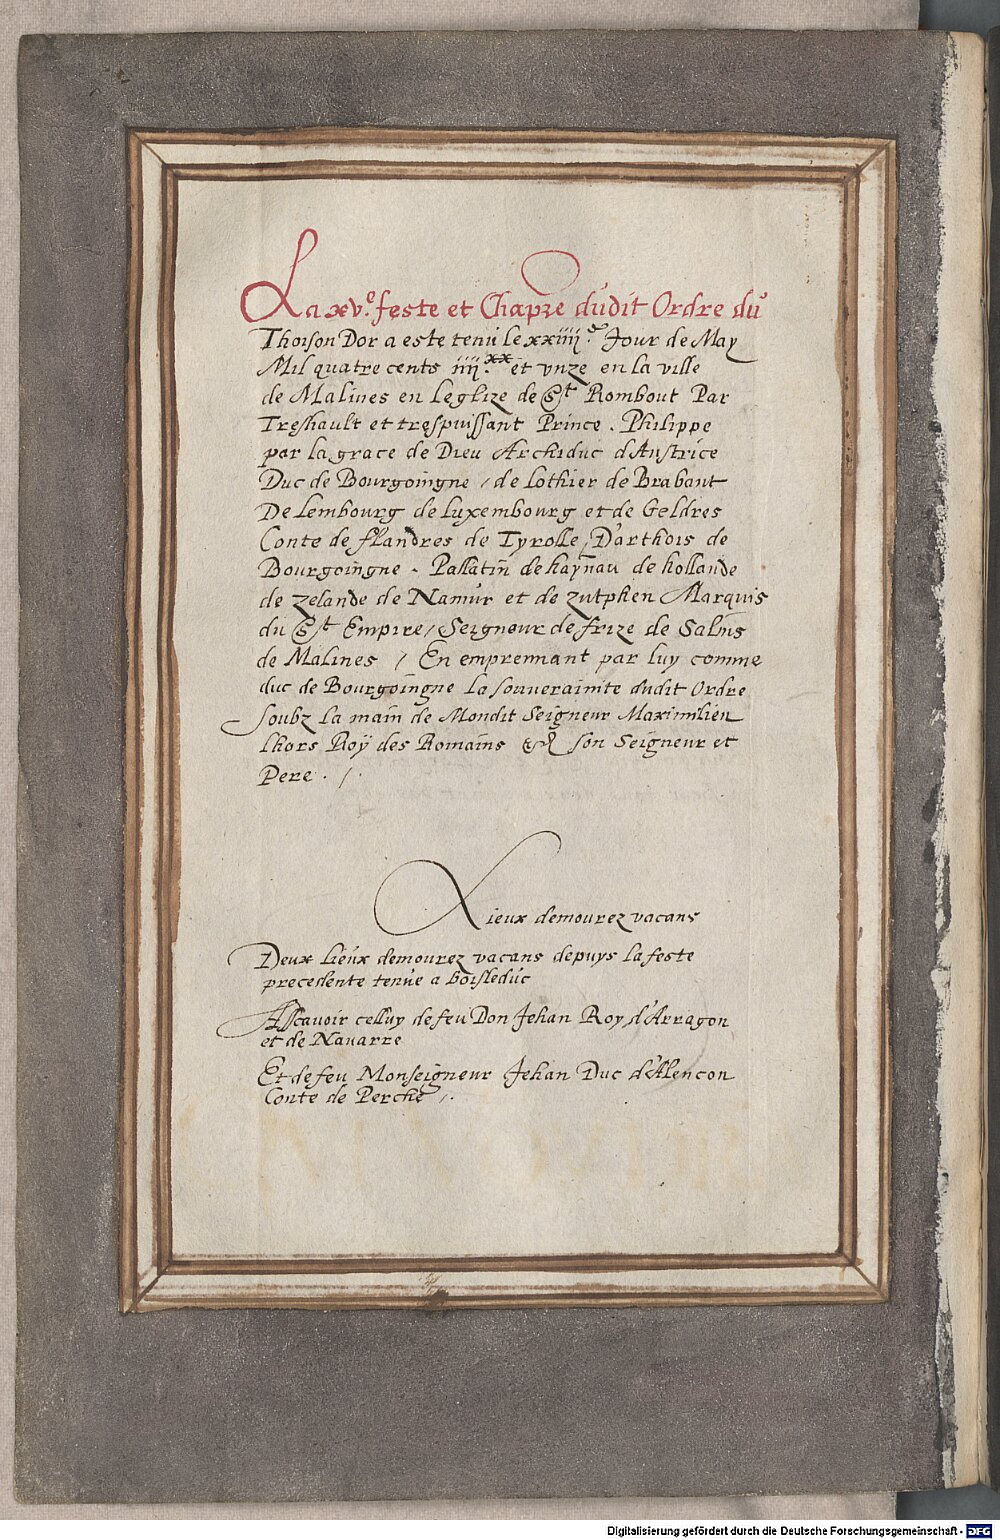 La xv.e feste et Chapre dudit Ordre du
Thoison Dor a este tenu le xxiiij.e Jour de May
Mil quatre cents iiij.xx et vnze en la ville
de Malines en leglize de St Rombout Par
Treshault et trespuissant Prince . Philippe
par la grace de Dieu Archiduc d'Austrice
Duc de Bourgoingne / de Lothier de Brabant
De Lembourg de Luxembourg et de Geldres
Conte de fflandres de Tyrolle / D'arthois de
Bourgoingne . Pallatin de haynau de hollande
de zelande de Namur et de zutphen Marquis
du St Empire / Seigneur de frize de Salins
de Malines / En emprennant par luy comme
duc de Bourgoingne la souverainite dudit Ordre
soubz la main de Mondit Seigneur Maximilien
lhors Roÿ des Romains &c son Seigneur et
Pere . /.
Lieux demourez vacans
Deux Lieux demourez vacans depuys la feste
precedente tenue a boisleduc
Asscauoir celluy de feu Don Jehan Roy d'Arragon
et de Nauarre
Et de feu Monseigneur Jehan Duc d'Alencon
Conte de Perche /.
Digitalisierung gefördert durch die Deutsche Forschungsgemeinschaft - DFG